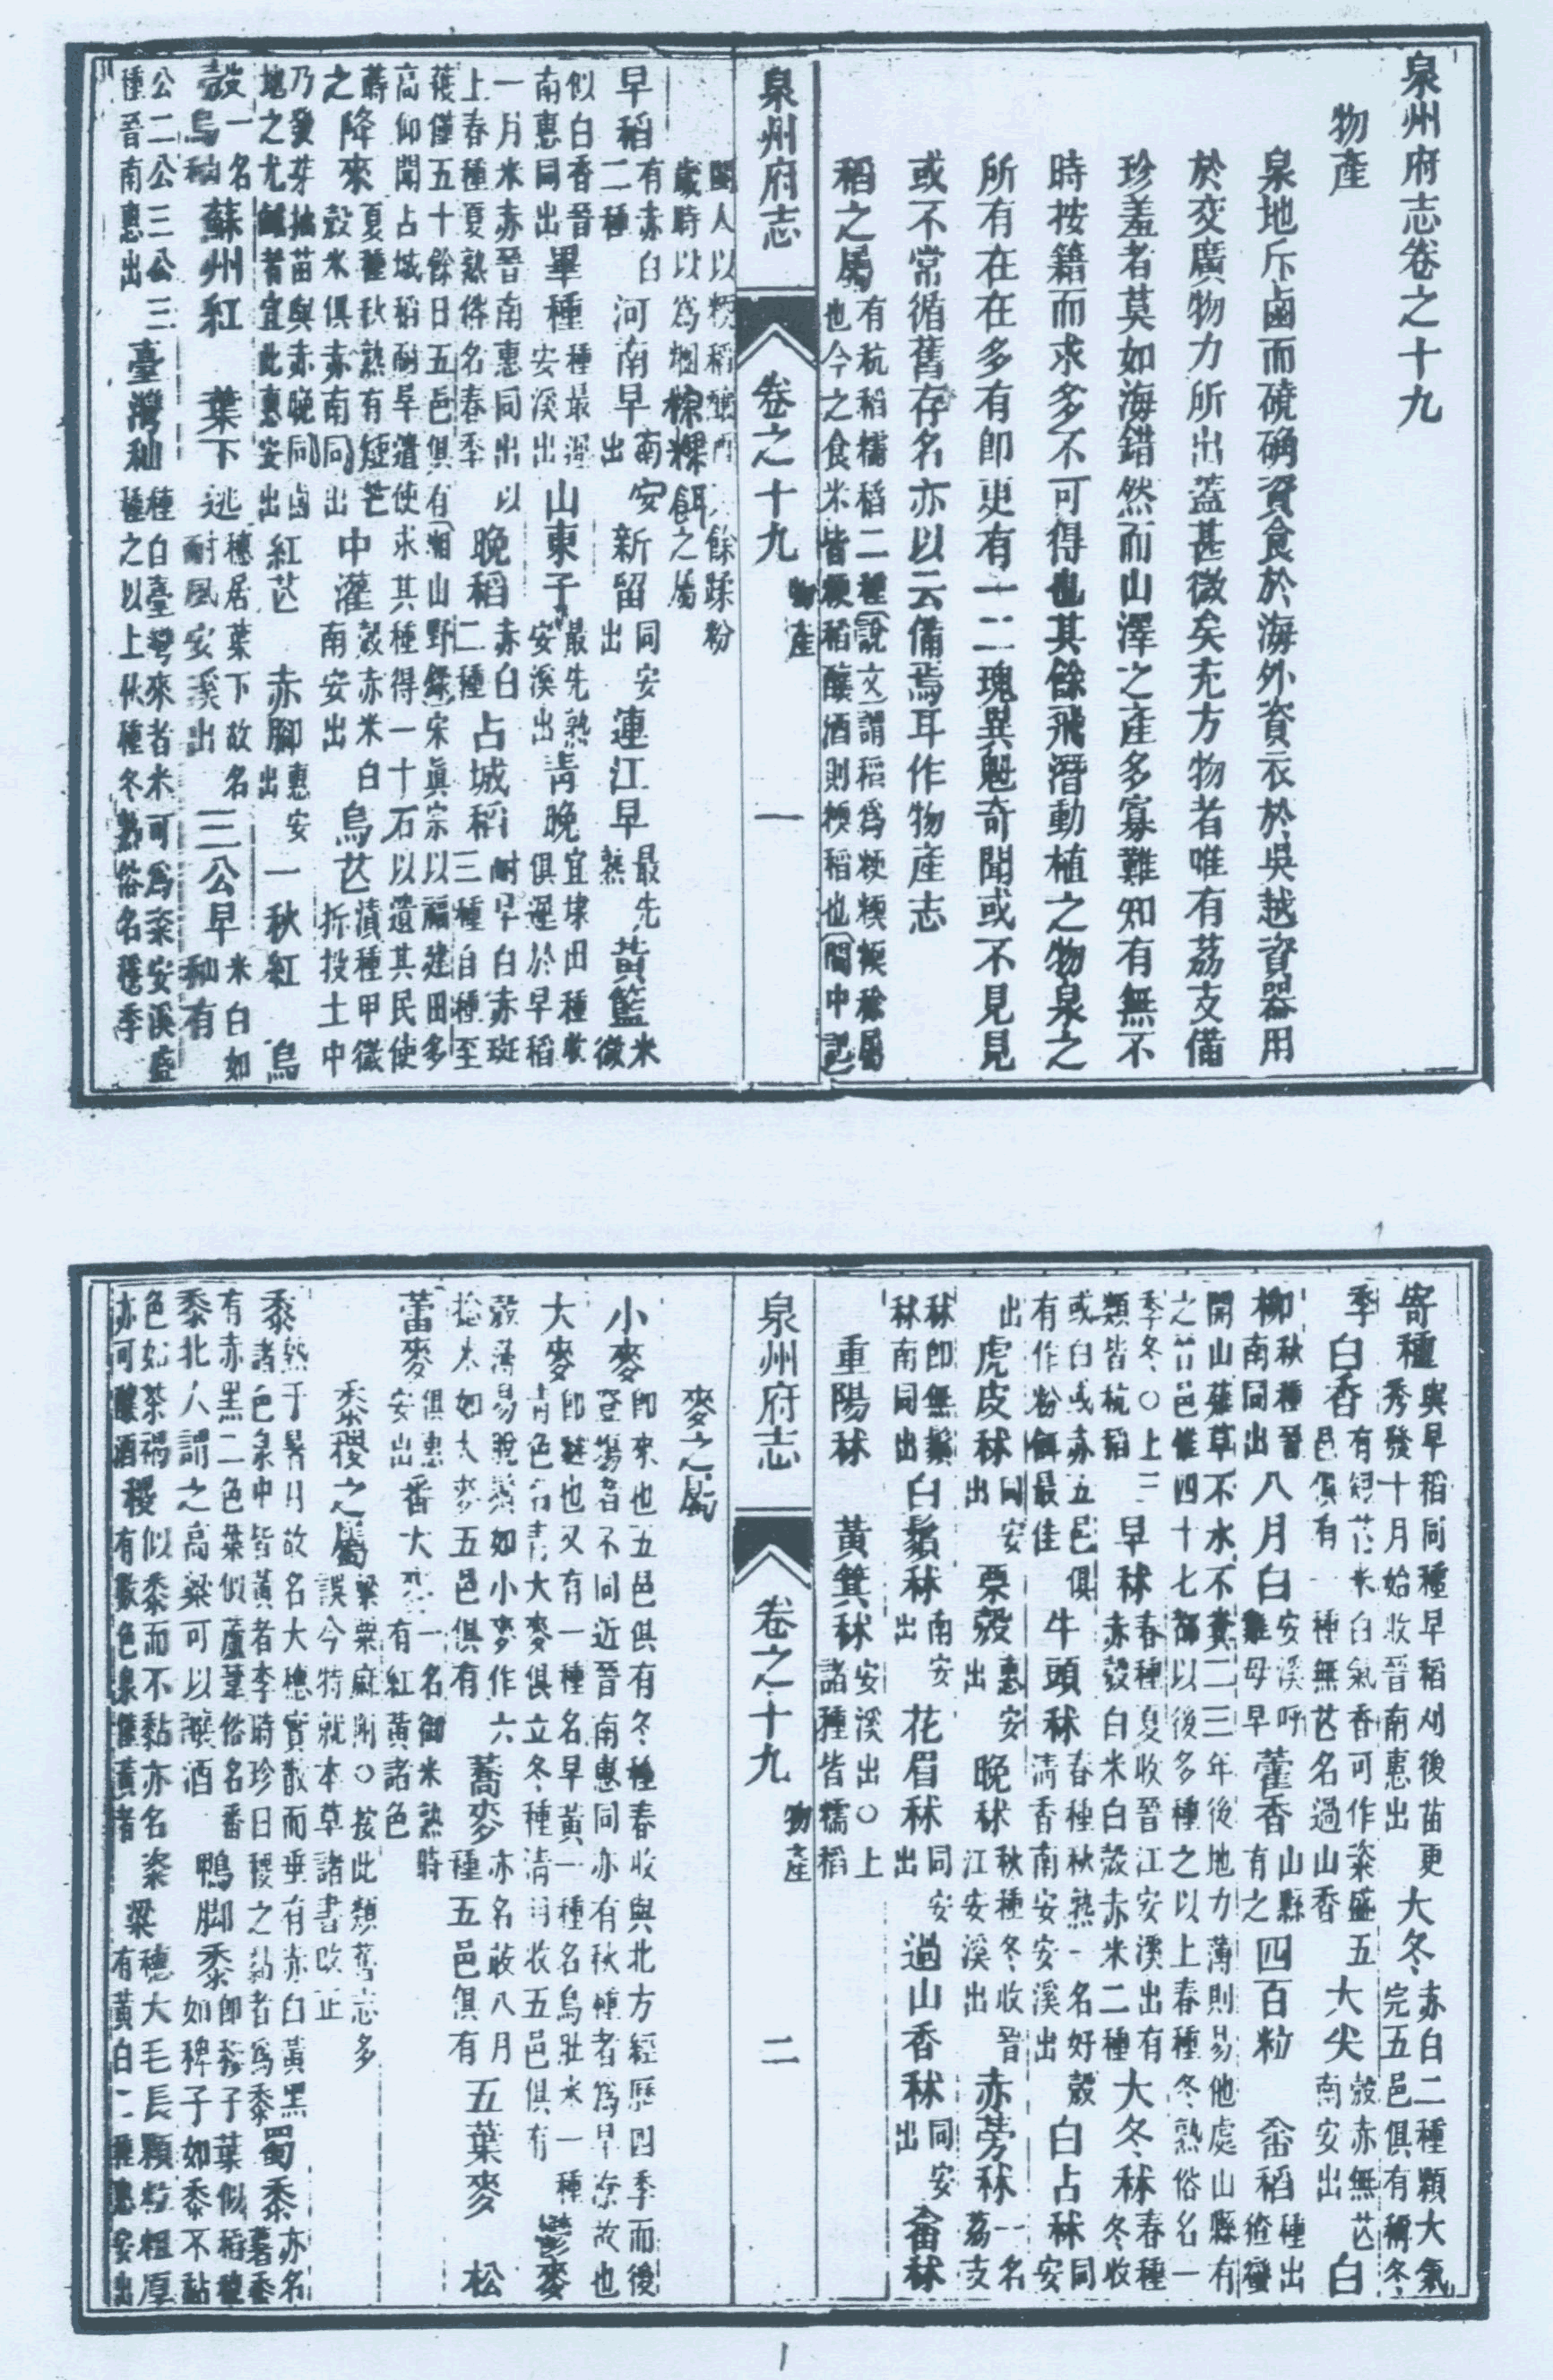 泉州府志卷之十九
物產
泉地斥鹵而磽确資食於海外資衣於吳越資器用
於交廣物力所出蓋甚微矣充方物者唯有荔支備
珍羞者莫如海錯然而山澤之產多寡難知有無不
時按籍而求多不可得也其餘飛潛動植之物泉之
所有在在多有卽更有一二瑰異魁奇聞或不見見
或不常循舊存名亦以云備焉耳作物產志
稻之屬 有秔稻糯稻二種說文謂稻爲粳粳稌屬也今之食米皆粳稻釀酒則稉稻也閩中記
泉州府志 卷之十九 物產 一
閩人以粳稻釀酒餘蹂粉歲時以爲糰粽粿餌之屬
早稻 有赤白二種 河南早 南安出 新留 同安出 連江早 最先熟 黃籃 米微
似白香晉南惠同出 畢種 種最遲安溪出 山東子 最先熟安溪出 靑晚 宜埭田種收俱遲於早稻
一月米赤晉南惠同出以上春種夏熟俗名春季 晚稻 赤白二種 占城稻 耐旱白赤斑三種自種至
穫僅五十餘日五邑俱有湘山野錄宋眞宗以福建田多高仰聞占城稻耐旱遣使求其種得一十石以遺其民使
蒔之 降來 夏種秋熟有短芒穀米俱赤南同出 中灌 穀赤米白南安出 烏芒 漬種甲微折投土中
乃發芽抽苗與赤晚同鹵地之尤鹹者宜此惠安出 紅芒 赤脚 卽惠安出 一秋紅 烏
殼 一名烏秞 蘇州紅 葉下逃 穗居葉下故名耐風安溪出 三公早 米白如秞有
公二公三公三種晉南惠出 臺灣秞 種自臺灣來者米可爲粢安溪盛種之以上秋種冬熟俗名穩季
寄種 與早稻同種早稻刈後苗更秀發十月始收晉南惠出 大冬 赤白二種顆大氣完五邑俱有稱冬
季 白香 有短芒米白氣香可作粢盛五邑俱有一種無芒名過山香 大尖 殼赤無芒南安出 白
柳 秋種晉南同出 八月白 安溪呼雞母早 藿香 山縣有之 四百粒 畬稻 種出猺蠻
開山薙草不水不糞二三年後地力薄則易他處山縣有之昔邑惟四十七都以後多種之以上春種冬熟俗名一
季冬○上三類皆秔稻 早秫 春種夏收晉江安溪出有赤殼白米白殼赤米二種 大冬秫 春種冬收
或白或赤五邑俱有作粉餌最佳 牛頭秫 春種秋熟一名好殼淸香南安安溪出 白占秫 同安
出 虎皮秫 同安出 栗殼 惠安出 晚秫 秋種冬收晉江安溪出 赤蒡秫 一名荔支
秫卽無鬚秫南同出 白鬚秫 南安出 花眉秫 同安出 過山香秫 同安出 畬秫
重陽秫 黃箕秫 安溪出○上諸種皆糯稻
泉州府志 卷之十九 物產 二
麥之屬
小麥 卽來也五邑俱有冬種春收與北方經歷四季而後登場者不同近晉南惠同亦有秋種者爲早潦故也
大麥 卽麰也又有一種名早黃一種名烏壯米一種靑色名靑大麥俱立冬種淸明收五邑俱有 鬱麥
殼薄易脫鬚如小麥作六稜米如大麥五邑俱有 蕎麥 亦名荍八月種五邑俱有 五葉麥 松
蕾麥 俱惠安出 番大麥 一名御米熟時有紅黃諸色
黍稷之屬 梁粟麻附○按此類舊志多誤今特就本草諸書改正
黍 熟于暑月故名大穗實散而垂有赤白黃黑諸色泉中皆黃者李時珍曰稷之黏者爲黍 蜀黍 亦名蘆黍
有赤黑二色葉似蘆葦俗名番黍北人謂之高粱可以釀酒 鴨脚黍 卽穇子葉似稻穗如稗子如黍不黏
色如茶褐亦可釀酒 稷 似黍而不黏亦名粢有數色泉僅黃者 粱 穗大毛長顆粒粗厚有黃白二種惠安出
1